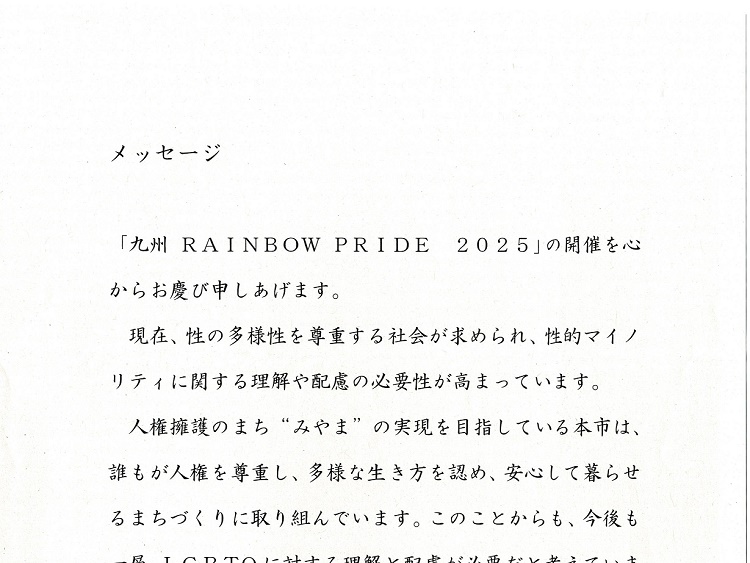 メッセージ
「九州 ＲＡＩＮＢＯＷ ＰＲＩＤＥ　２０２５」の開催を心
からお慶び申しあげます。
現在、性の多様性を尊重する社会が求められ、性的マイノ
リティに関する理解や配慮の必要性が高まっています。
人権擁護のまち“みやま”の実現を目指している本市は、
誰もが人権を尊重し、多様な生き方を認め、安心して暮らせ
るまちづくりに取り組んでいます。このことからも、今後も
一層 ＬＧＢＴＱに対する理解と配慮が必要だと考えていま